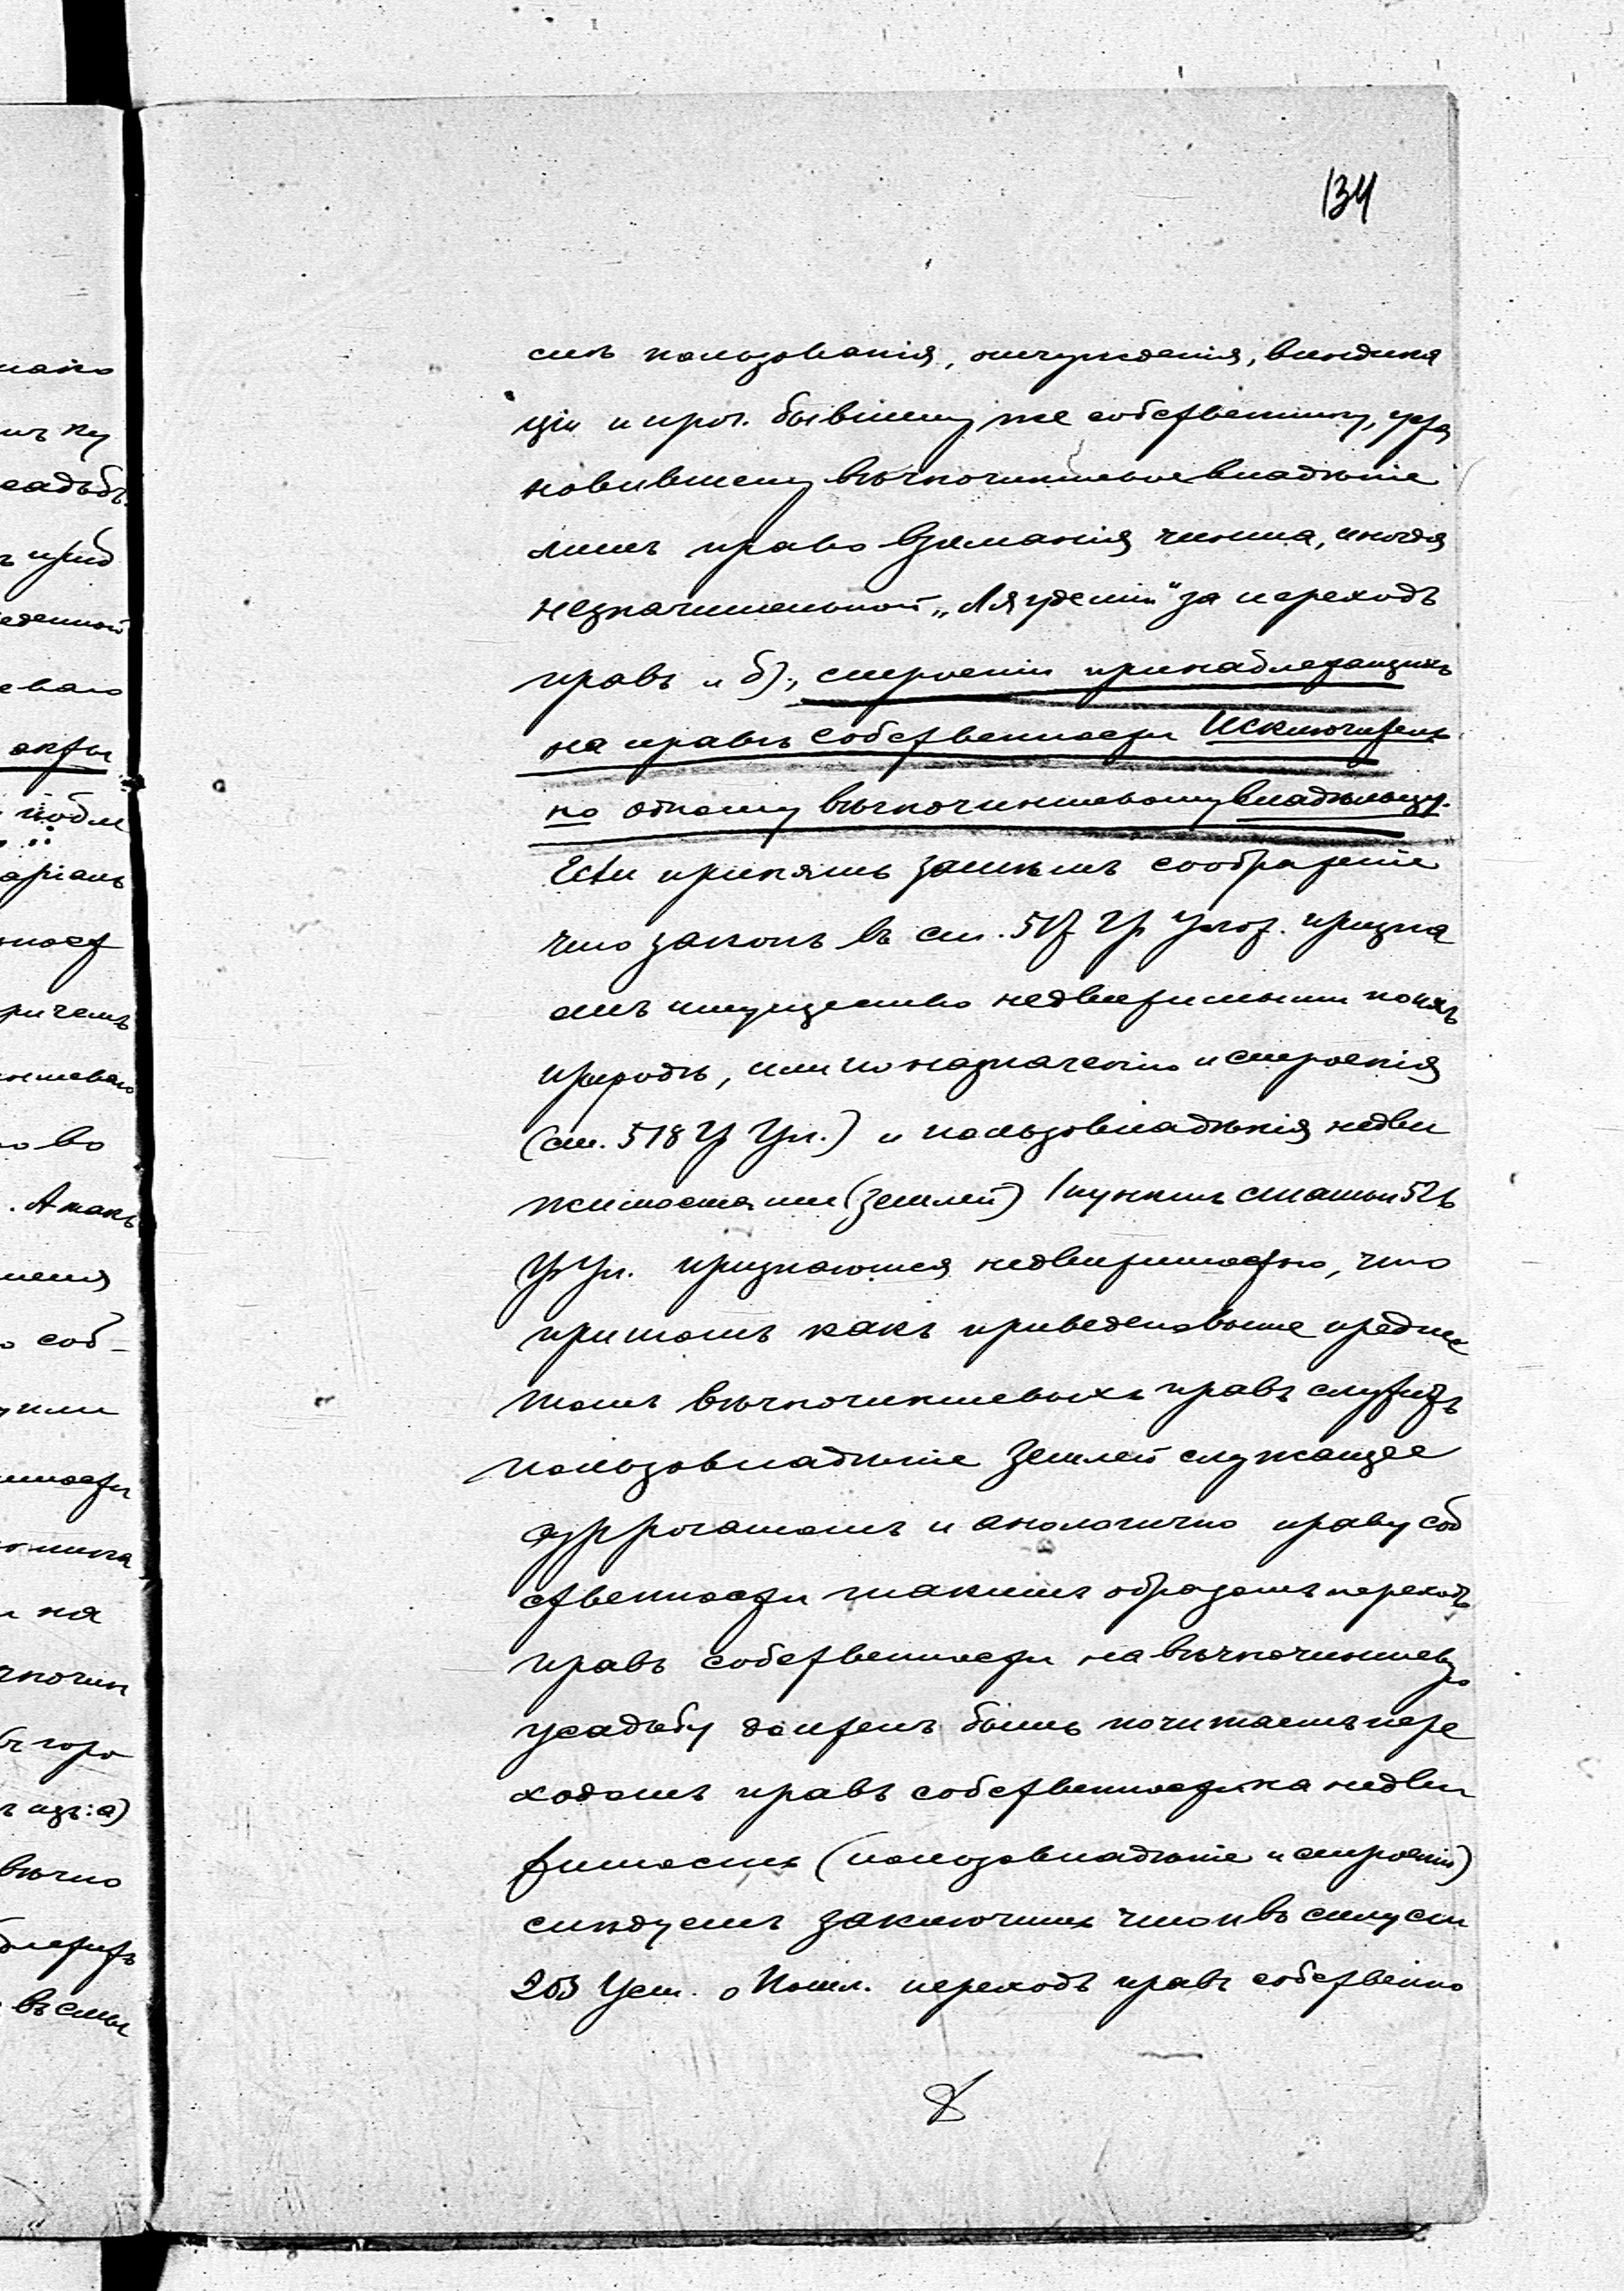 134
сть пользованія, отчужденія, виндика
ціи и проч. бывшему же собственнику, уста
новившему вѣчночиншевое владѣніе
лишь право взиманія чинша, иногда
незначительной „Ляудеміи" за переходъ
правъ и б), строеніи принадлежащихъ
на правѣ собственности исключитель
но одному вѣчночиншевому владѣльцу.
Если принять затѣмъ соображеніе
что законъ въ ст. 517 Гр Улож. призна
етъ имуществo недвижимыми по ихъ
природѣ, или по назначенію и строенія
(ст. 518 Гр Ул.) и пользовладѣнія недви
жимостями (землей) 1 пунктъ статьи 526
Гр Ул. признаются недвижимостью, что
притомъ какъ приведено выше предме
томъ вѣчночиншевыхъ правъ служитъ
пользовладѣніе землей служащее
суррогатомъ и аналогично праву соб
ственности такимъ образомъ переходъ
правъ собственности на вѣчночиншевую
усадьбу долженъ быть почитаемъ пере
ходомъ правъ собственности на недви
жимость (пользовладѣніе и строеніи)
слѣдуетъ заключить что и въ силу ст
203 Уст. о Пошл. переходъ правъ собственно
8